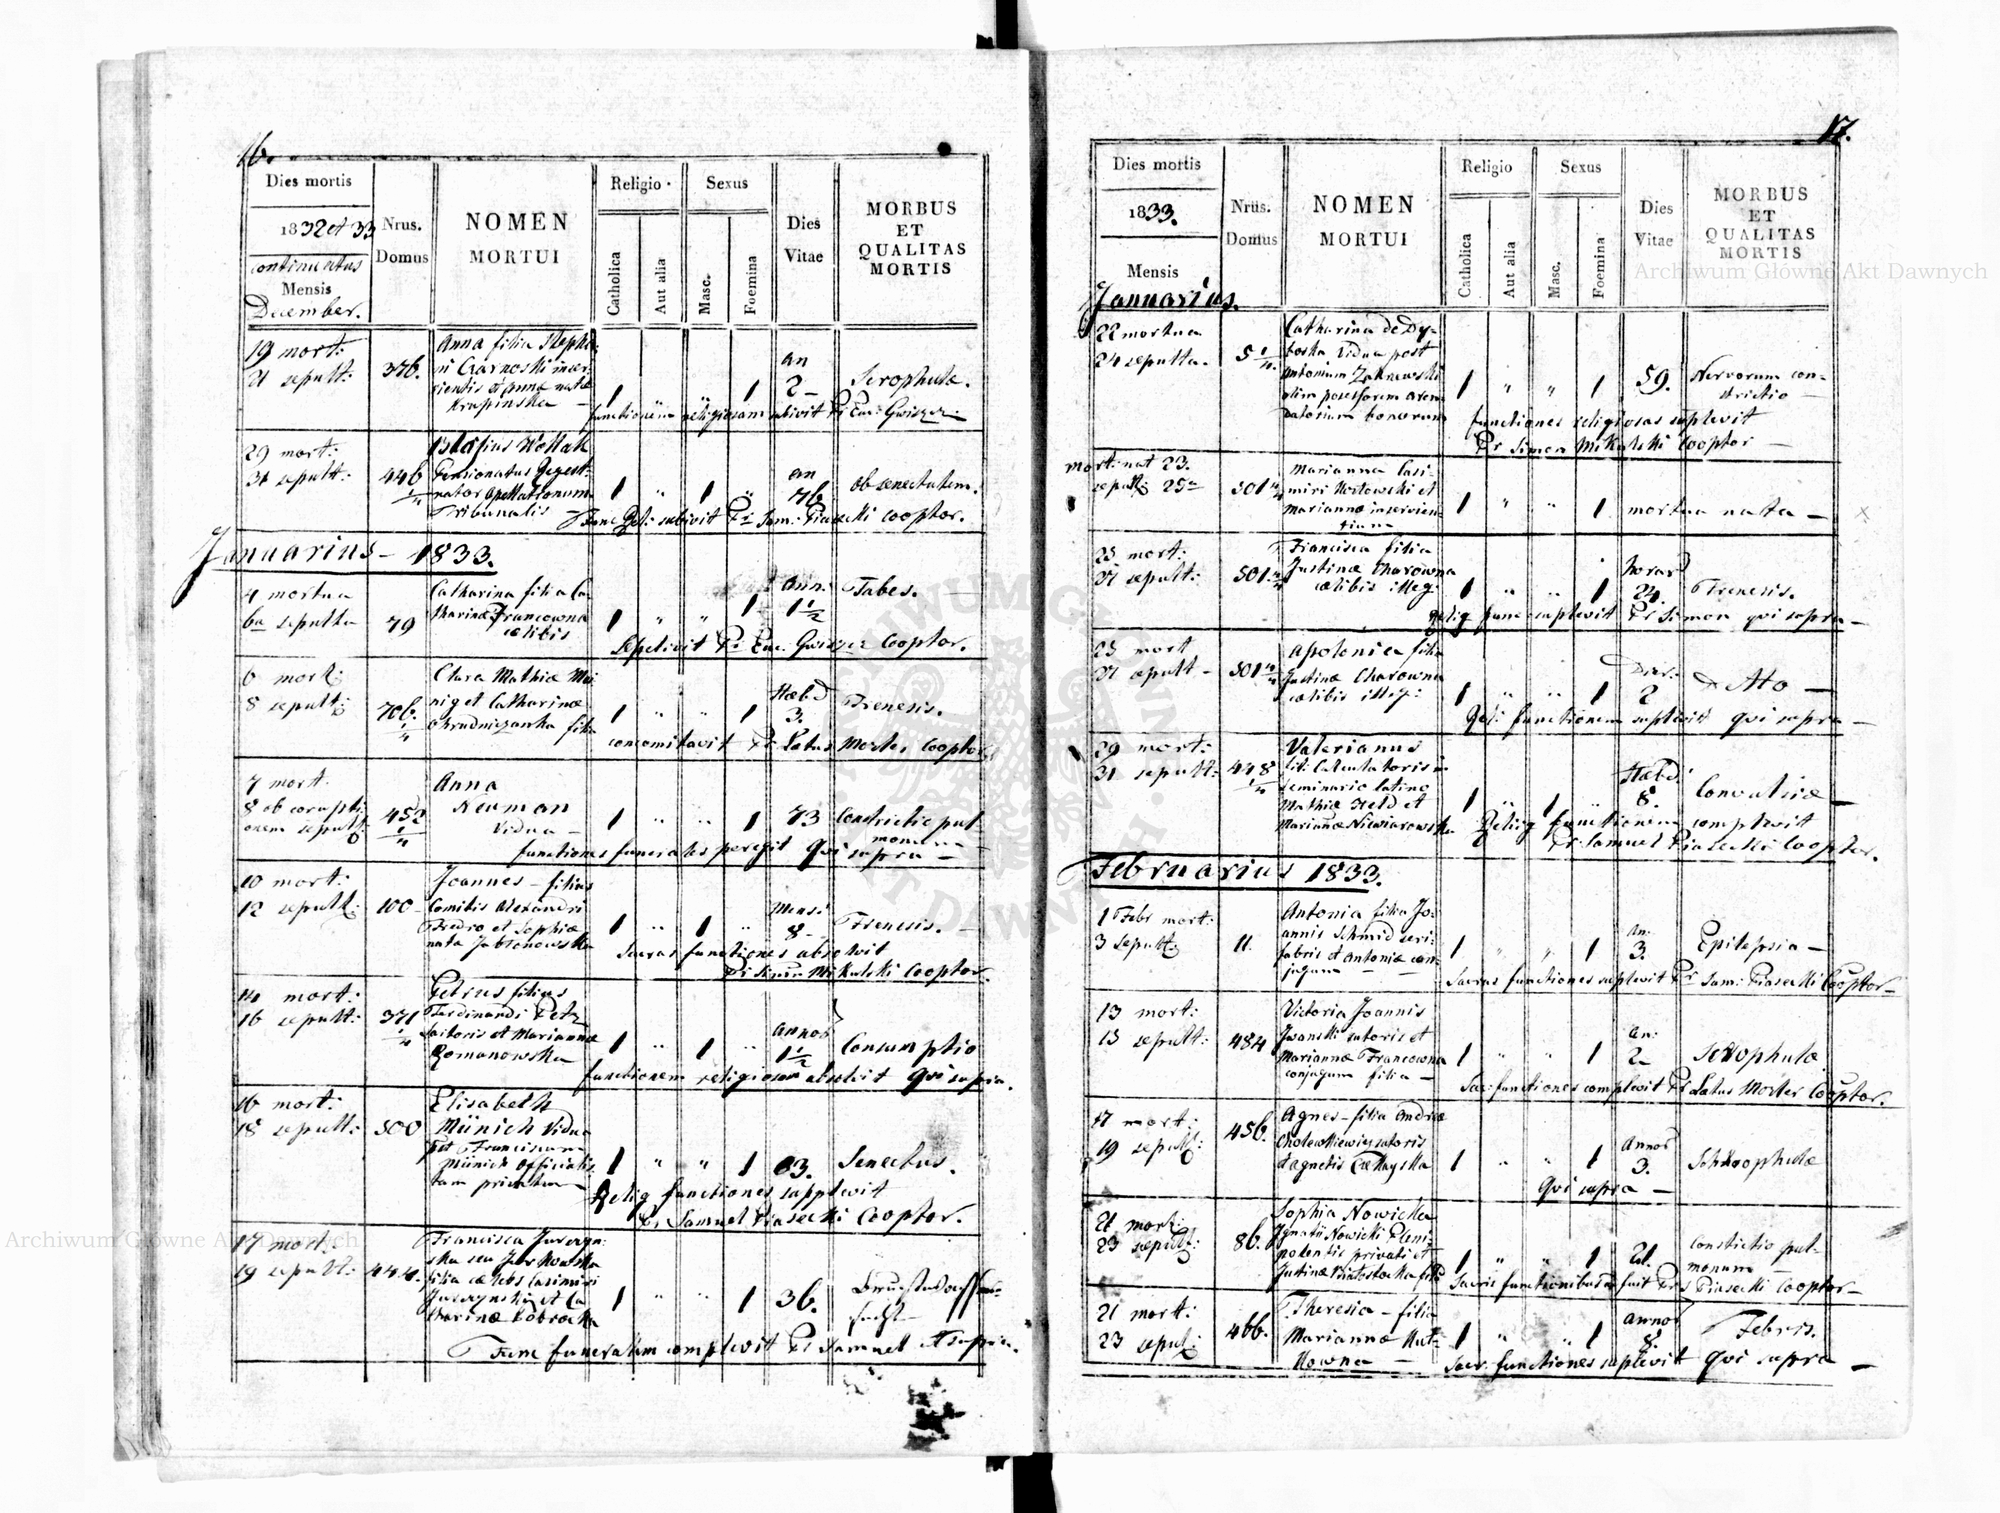 16.
Dies mortis
1832 et 33
continuatus
Mensis
December.
Nrus.
Domus
NOMEN
MORTUI
Religio
Catholica
Aut alia
Sexus
Masc.
Foemina
Dies
Vitae
MORBUS
ET
QUALITAS
MORTIS
19 mort:
21 sepult:
376.
Anna filia Stepha-
ni Czarnoski inser-
vientis et Annæ natæ
Krupinska —
1 " " 1
an
2 —
Scrophulæ.
functionem religiosam subivit Pr Euc: Gwiszcz:
29 mort:
31 sepult:
446
1/4
Blasius Wollak
Pensionatus Regest-
rator Apellationum
Tribunalis
1 " 1 "
an
76
ob senectutem.
Func Rel: subivit Pr Sam: Piasecki Cooptor.
Januarius – 1833.
4 mortua
6ta sepulta
79
Catharina filia Ca-
tharinæ Francowna
cælibis
1 " " 1
Ann:
1 1/2
Tabes. —
Sepelivit Pr Euc. Gwiszcz Cooptor.
6 mort:
8 sepult:
706.
1/4
Clara Mathiæ
et Catharinæ
filia
1 " " 1
Hebd
3.
Frenesis.
concomitavit Pr Latus Morter Cooptor.
7 mort.
8 ob corupti-
onem sepult:
452
1/4
Anna
Neuman
Vidua —
1 " " 1
73
Constrictio pul-
monum —
functiones funerales peregit Qui supra —
10 mort:
12 sepult:
100
Joannes – filius
Comitis Alexandri
Fredro et Sophiæ
nata Jablonowska
1 " 1 "
Mensi
8 —
Frenesis. —
Sacras functiones absolvit
Pr Simon Mikulski Cooptor.
14 mort:
16 sepult:
371
1/4
Petrus filius
Ferdinandi Petz
sartoris et Mariannæ
Romanowska
1 " 1 "
Annos
1 1/2
Consumptio
functionem religiosam absolvit Qui supra.
16 mort:
18 sepult:
500
Elisabeth
Münich Vidua
post Franciscum
Münich Officialis-
tam privatum —
1 " " 1
63.
Senectus.
Relig functiones supplevit
Pr Samuel Piasecki Cooptor.
17 mort:
19 sepult:
444.
Francisca Jurczyn-
ska seu Jurkowska
filia cælebs Casimiri
Jurczynski et Ca-
tharinæ Dobrocka
1 " " 1
36.
Brustwasser-
sucht —
Func funeralem complevit Pr Samuel ut supra.
17.
Dies mortis
1833.
Mensis
Januarius.
Nrus.
Domus
NOMEN
MORTUI
Religio
Catholica
Aut alia
Sexus
Masc.
Foemina
Dies
Vitae
MORBUS
ET
QUALITAS
MORTIS
22 mortua
24 sepulta.
5 1/4
Catharina de Dy-
boska Vidua post
Antonium Zakrzewski
olim possessorem aren-
datorium bonorum
1 " " 1
59.
Nervorum con-
strictio —
functiones religiosas suplevit
Pr Simon Mikulski Cooptor —
mort: nat 23.
sepult: 25ta
501 4/4
Marianna Casi-
miri Kotowski et
Mariannæ inservien-
tium
1 " " 1
mortua nata —
25 mort:
27 sepult:
501 4/4
Francisca filia
Justinæ Charowna
cælibis illeg:
1 " " 1
horas
24.
Frenesis.
Relig func suplevit Pr Simon qui supra —
25 mort
27 sepult –
501 4/4
Apolonia filia
Justinæ Charowna
cælibis illeg:
1 " " 1
Dies.
2
Detto —
Reli: functionem suplevit qui supra —
29 mort:
31 sepult:
448
1/4
Valerianus
fil: Calculatoris in
seminario latino
Mathiæ Held et
Mariannæ Niewiarowska
1 " 1 "
Hebd:
8.
Convulsiæ —
Relig functionem complevit
Pr Samuel Piasecki Cooptor.
Februarius 1833.
1 Febr mort:
3 sepult:
11.
Antonia filia Jo-
annis Schmid seri-
fabris et Antoniæ con-
jugum —
1 " " 1
An:
3.
Epilepsia —
Sacras functiones suplevit Pr Sam: Piasecki Cooptor —
13 mort:
15 sepult:
484
Victoria Joannis
Iwanski sutoris et
Mariannæ Francowna
conjugum filia —
1 " " 1
An:
2
Scrophulæ
Sac: functiones complevit Pr Latus Morter Cooptor.
17 mort:
19 sepult:
456.
Agnes – filia Andreæ
Cholewkiewicz sutoris
1 " " 1
Annos
3.
Schroophulæ
Qui supra —
21 mort:
23 sepult:
86.
Sophia Nowicka
Ignatii Nowicki Pleni-
potentis privati et
Justinæ filia
1 " " 1
21.
Constictio pul-
monum —
Sacris functionibus fuit Pr S Piasecki Cooptor —
21 mort:
23 sepul:
466.
Theresia – filia
Mariannæ Hut-
kowna —
1 " " 1
Annos
8.
Febris.
Sacr: functiones suplevit qui supra —
Archiwum Główne Akt Dawnych
Archiwum Główne Akt Dawnych
ARCHIWUM GŁÓWNE AKT DAWNYCH